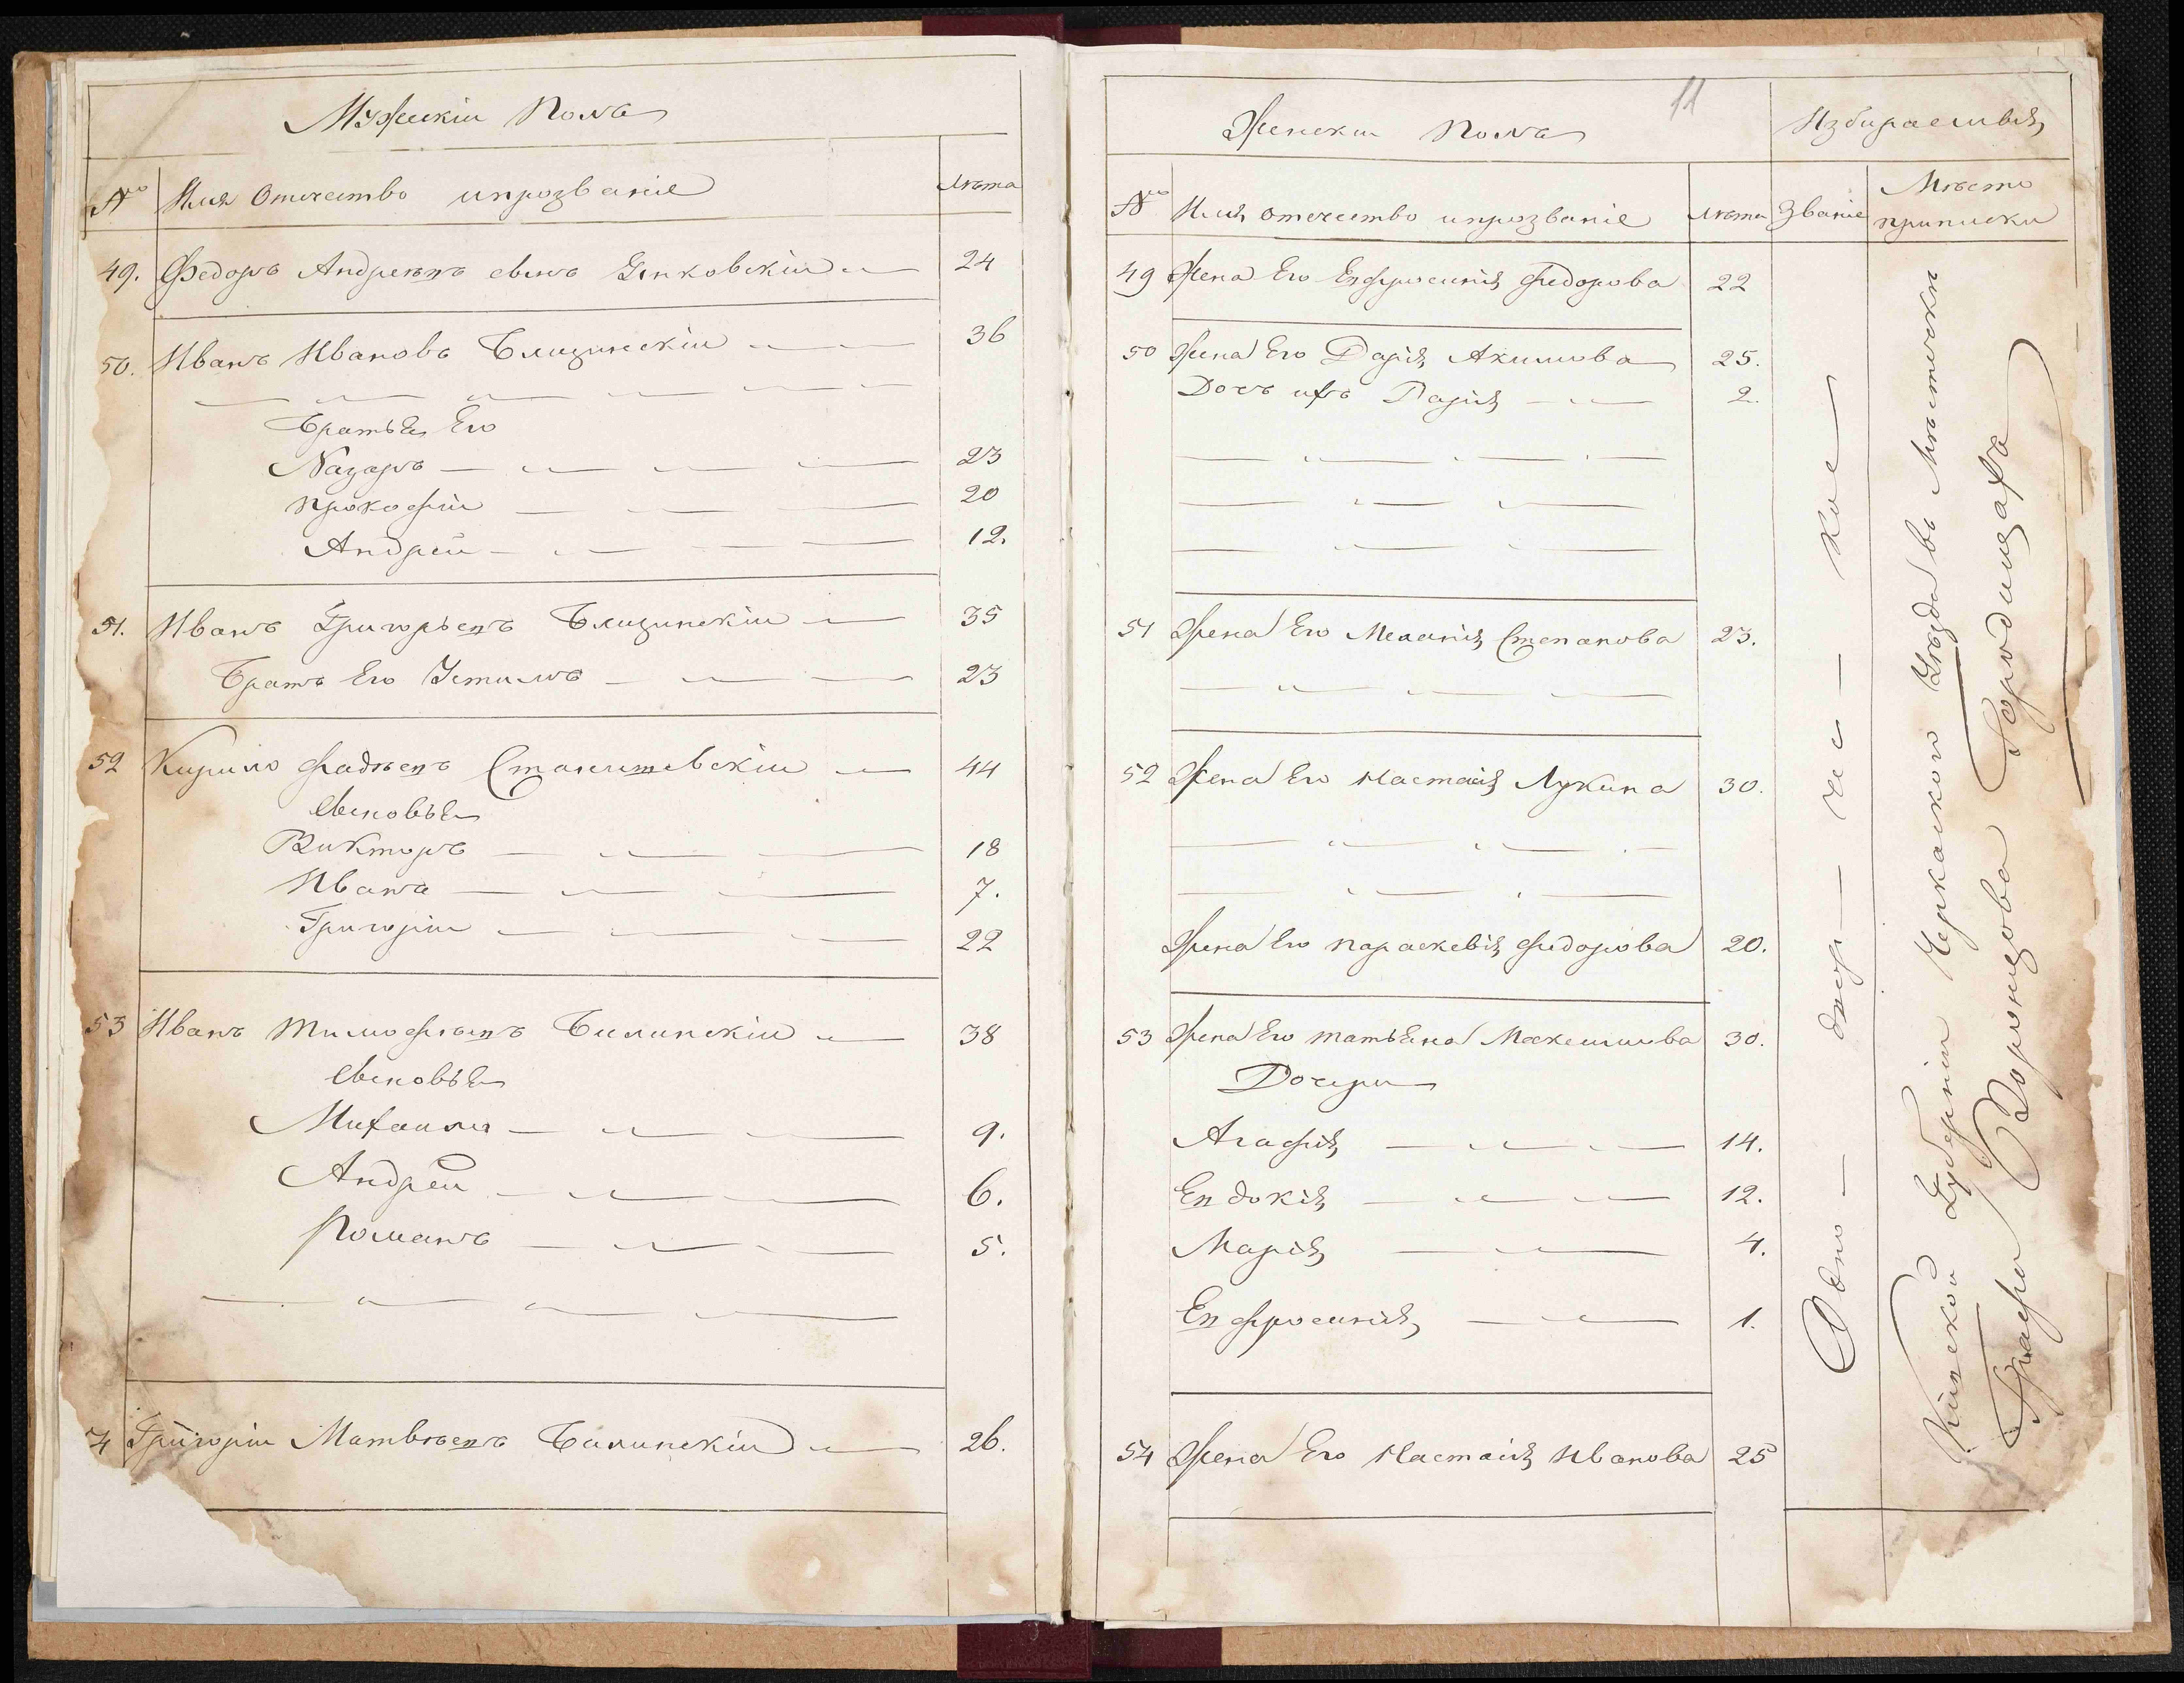 Мужскій Пола
№ Имя Отечество ипрозваніе лѣта
49. Федоръ Андреевъ сынъ 24
50. Иванъ Ивановъ Близинскій 36
Братья Его
Назаръ 23
Прокофій 20
Андрей 12.
51. Иванъ Григорьевъ Близинскій 35
Братъ Его Устимъ 23
52 Кирило Фадѣевъ 44
сыновья
Викторъ 18
Ивана 7.
Григорій 22
53 Иванъ Тимофѣевъ Билинскій 38
сыновья
Михаила 9.
Андрей 6.
Романъ 5.
54 Григорій Матвѣевъ Балинскій 26.
11
Женскій Пола
Избираемыя
№ Имя отечество ипрозваніе лѣта Званіе Мѣсто приписки
49 Жена Его Евфросинія Федорова 22
50 Жена Его Дарія Акимова 25.
Дочь ихъ Дарія 2.
51 Жена Его Меланія Степанова 23.
52 Жена Его Настасія Лукина 30.
Жена Его Параскевія Федорова 20.
53 Жена Его Татьяна 30.
Дочери
Агафія 14.
Евдокія 12.
Марія 4.
Евфросинія 1.
54 Жена Его Настасія Иванова 25
Одно - двор - чес - кое
Кіевской Губерніи Черкаского Уѣзда въ Мѣстичкѣ
Графа Воронцова Городищахъ